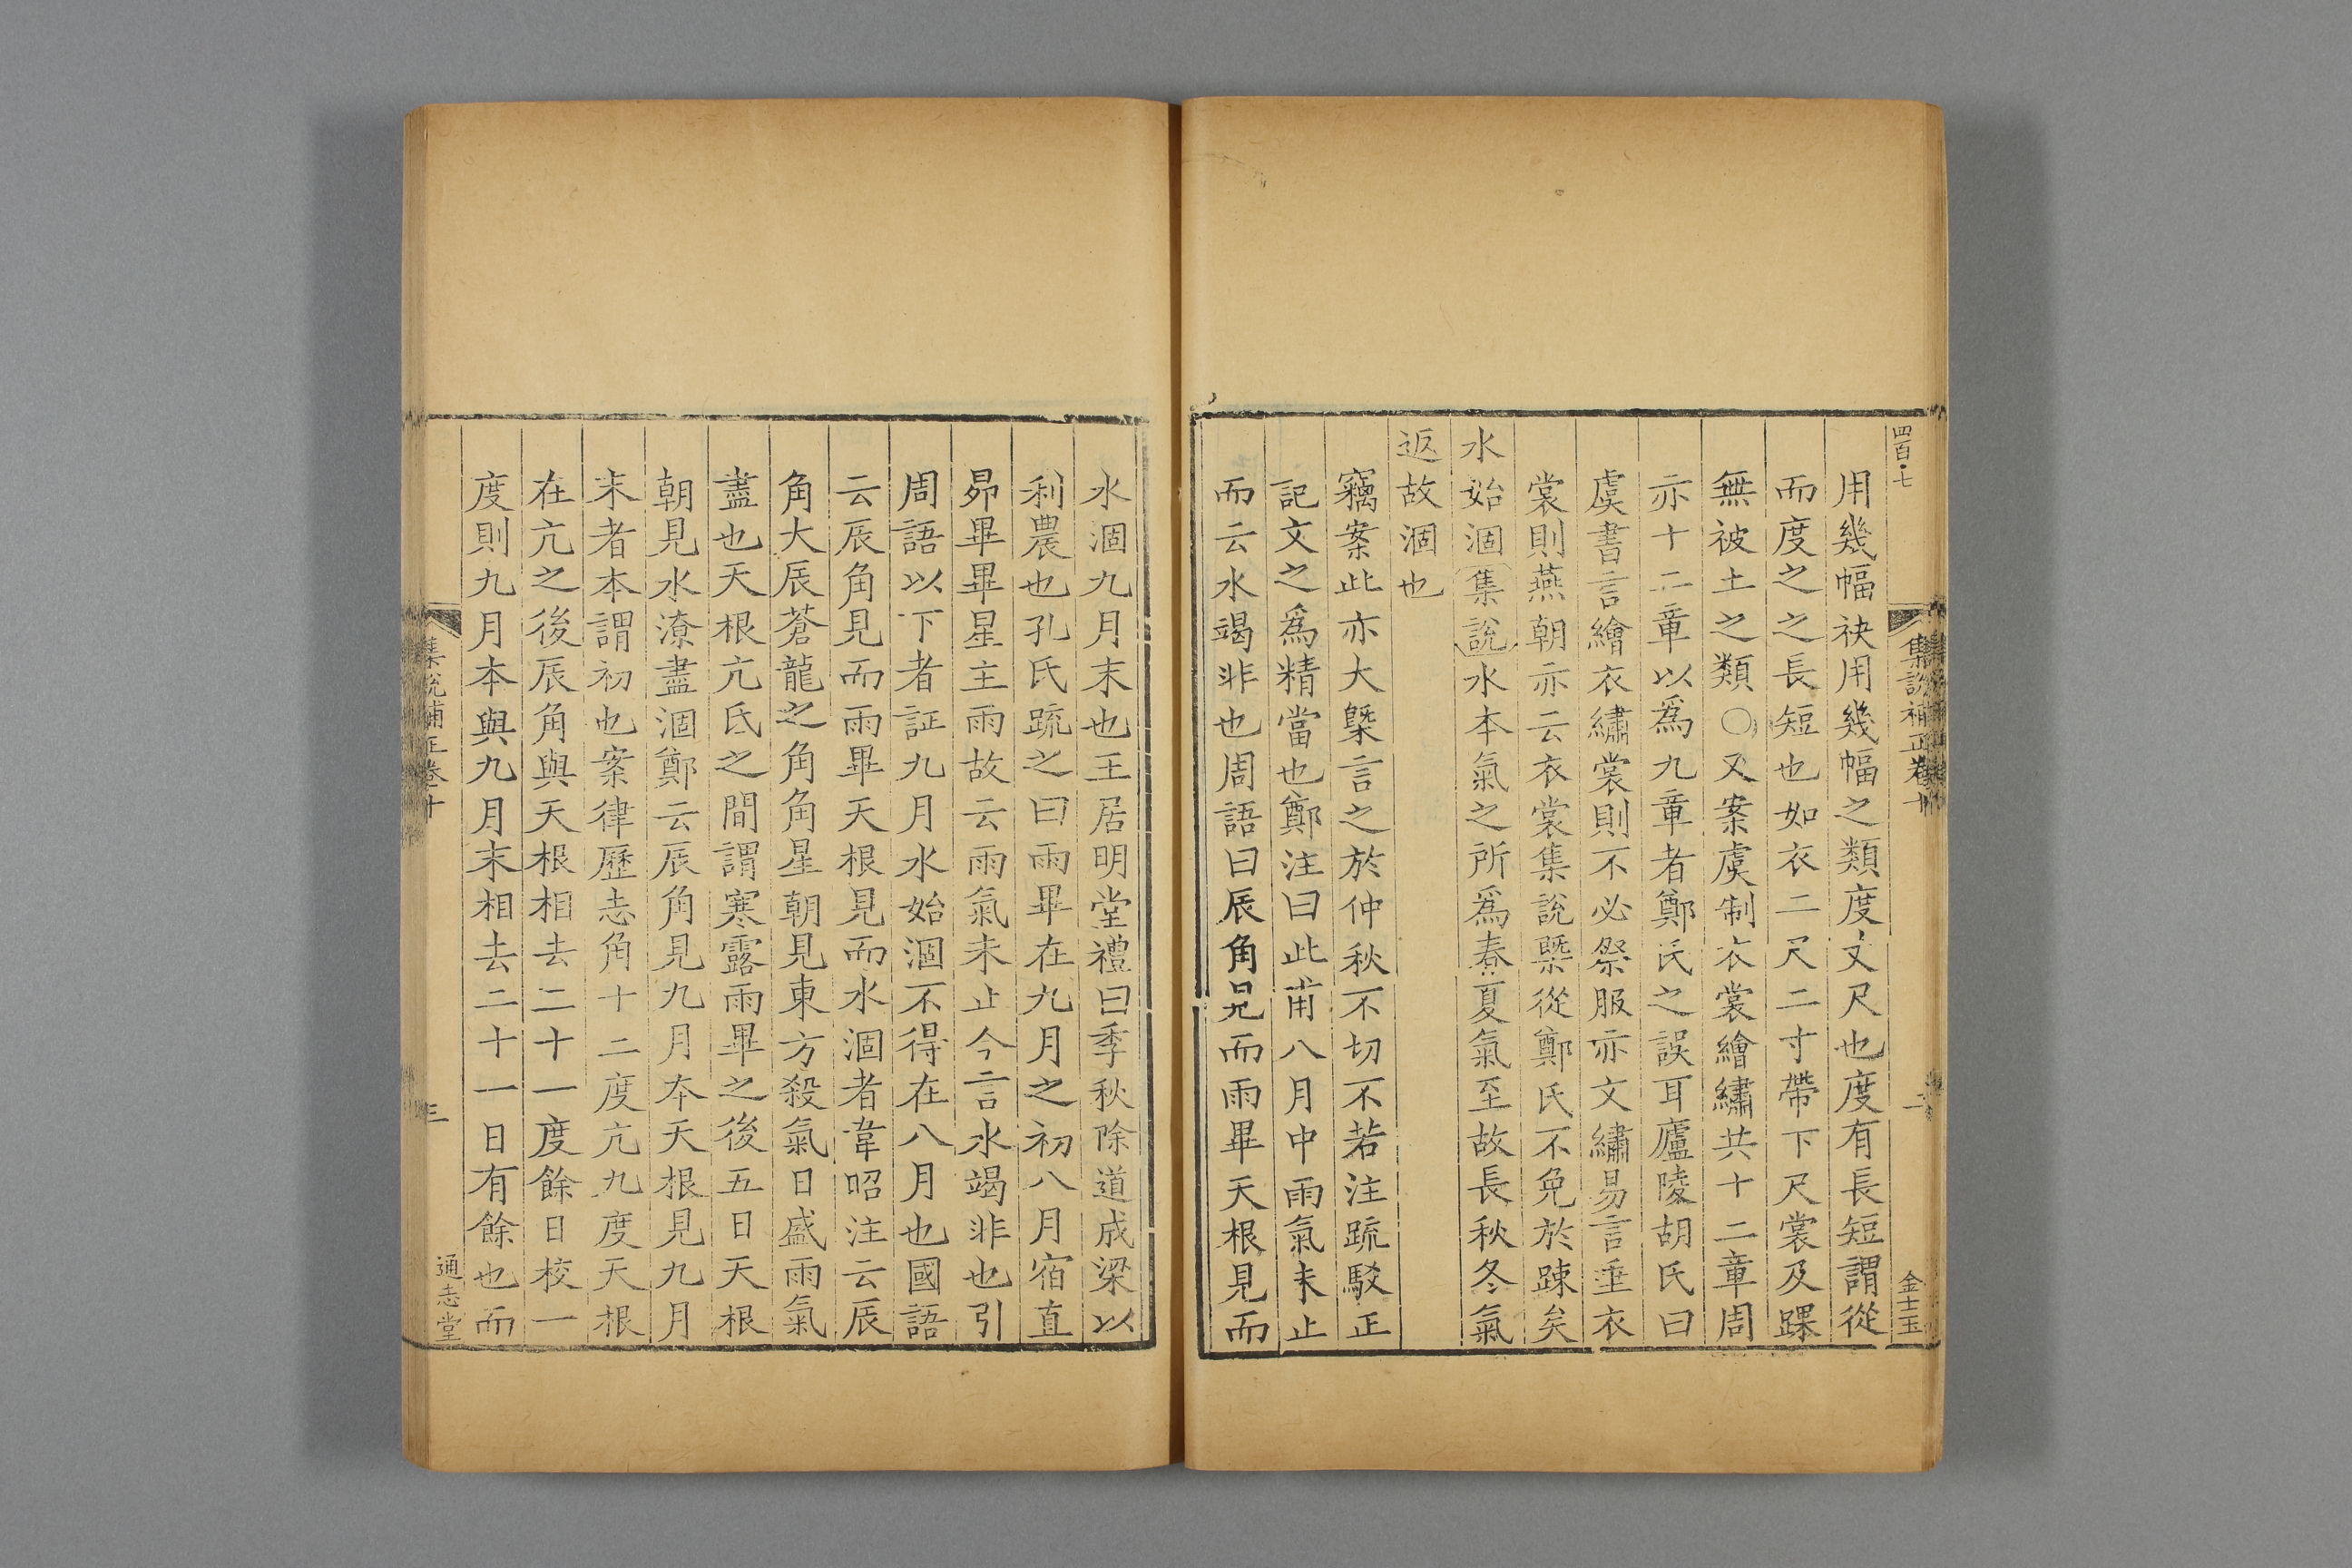 四百七
集說補正卷十
二
金士玉
用幾幅袂用幾幅之類度丈尺也度有長短謂從
而度之之長短也如衣二尺二寸帶下尺裳及踝
無被土之類○又案虞制衣裳繪繡共十二章周
亦十二章以爲九章者鄭氏之誤耳廬陵胡氏曰
虞書言繪衣繡裳則不必祭服亦文繡易言垂衣
裳則燕朝亦云衣裳集說槩從鄭氏不免於踈矣
水始涸集說水本氣之所爲春夏氣至故長秋冬氣
返故涸也
竊案此亦大槩言之於仲秋不切不若注疏駁正
記文之爲精當也鄭注曰此甫八月中雨氣未止
而云水竭非也周語曰辰角見而雨畢天根見而
水涸九月末也王居明堂禮曰季秋除道成梁以
利農也孔氏疏之曰雨畢在九月之初八月宿直
昴畢畢星主雨故云雨氣未止今言水竭非也引
周語以下者証九月水始涸不得在八月也國語
云辰角見而雨畢天根見而水涸者韋昭注云辰
角大辰蒼龍之角角星朝見東方殺氣日盛雨氣
盡也天根亢氐之間謂寒露雨畢之後五日天根
朝見水潦盡涸鄭云辰角見九月本天根見九月
末者本謂初也案律歷志角十二度亢九度天根
在亢之後辰角與天根相去二十一度餘日校一
度則九月本與九月末相去二十一日有餘也而
集說補正卷十
三
通志堂